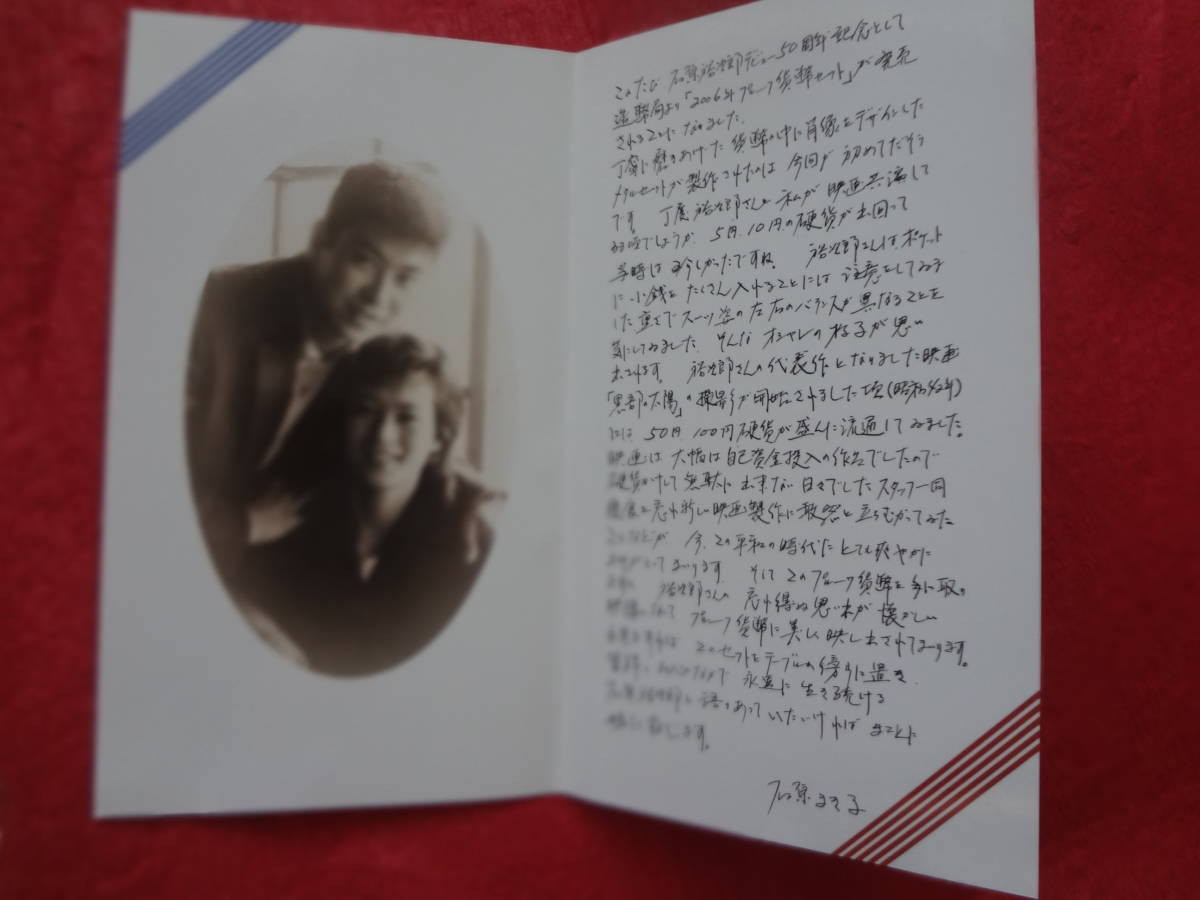 このたび 石原裕次郎デビュー50周年記念として
造幣局より「2006年プルーフ貨幣セット」が発売
されることになりました。
丁寧に磨きあげた貨幣の中に肖像をデザインした
メダルセットが製作されたのは 今回が初めてだそう
です。 丁度 裕次郎さんと私が映画共演して
頃でしょうか 5円、10円の硬貨が出回って
当時は珍しかったですね。 裕次郎さんはポケット
に小銭を たくさん入れることには 注意をしてみえ
した 重さでスーツ姿の左右のバランスが異なることを
気にしてみました。そんなオシャレの様子が思い
出されます。 裕次郎さんの代表作となりました映画
「黒部の太陽」の撮影が開始されました頃(昭和42年)
には、50円 100円硬貨が盛んに流通してみました。
映画は 大幅は自己資金投入の作品でしたので
硬貨 して無駄に出来ない日々でしたスタッフ一同
を忘れ新しい映画製作に敢然と立ちむかってみた
ことなどが 今、この平和の時代にとても爽やかに
まいります。 そしてこのプルーフ貨幣を手に取り
裕次郎さんの 忘れ得ぬ思い出が懐かしい
プルーフ貨幣に美しく映し出されてまいります。
このセットをテーブルの傍らに置き
永遠に生き続ける
石原裕次郎と語りあっていただければ まことに
致します。
石原まき子